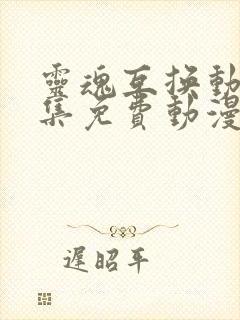 靈魂互換動
集免費動漫
遲昭平